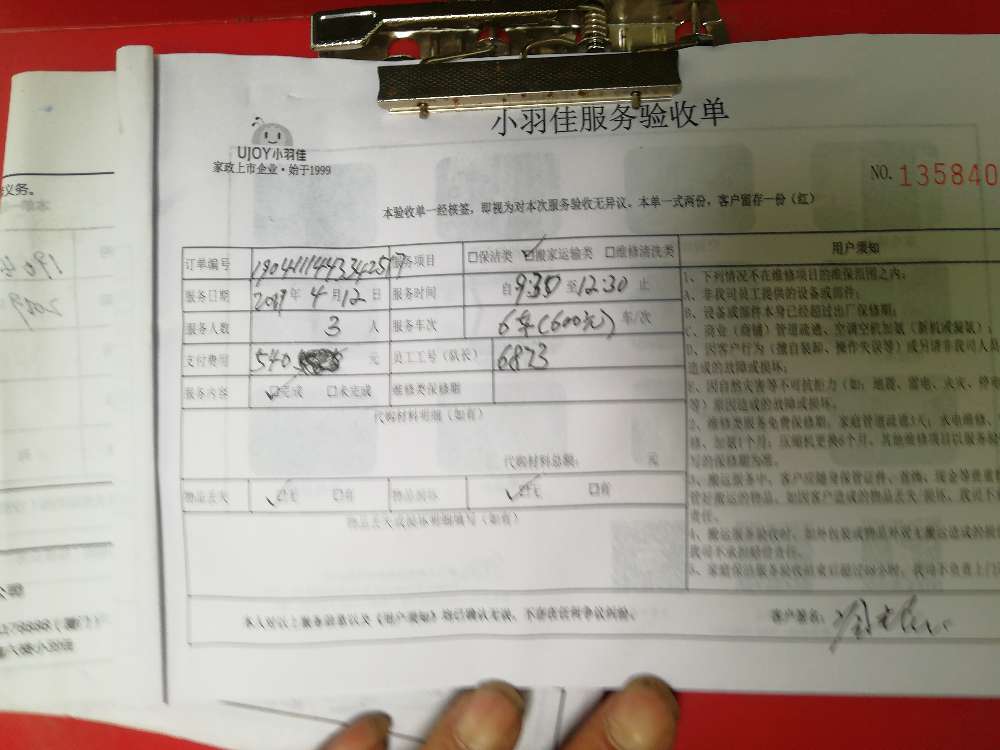 小羽佳服务验收单
UJOY小羽佳
家政上市企业·始于1999
NO. 135840
本验收单一经核签，即视为对本次服务验收无异议。本单一式两份，客户留存一份（红）
订单编号 服务项目 □保洁类 ☑搬家运输类 □维修清洗类
服务日期 2019年4月12日 服务时间 自9:30至12:30止
服务人数 3人 服务车次 6车(600元) 车/次
支付费用 540 元 员工工号（队长） 6823
服务内容 ☑完成 □未完成 维修类保修期
代购材料明细（如有）
代购材料总额： 元
物品丢失 ☑无 □有 物品损坏 ☑无 □有
物品丢失或损坏明细填写（如有）
用户须知
1、下列情况不在维修项目的维保范围之内：
A、非我司员工提供的设备或部件；
B、设备或部件本身已经超过出厂保修期；
C、商业（商铺）管道疏通、空调空机加氨（新机或漏氨）；
D、因客户行为（擅自装卸、操作失误等）或另请非我司人员
造成的故障或损坏；
E、因自然灾害等不可抗拒力（如：地震、雷电、火灾、停电
等）原因造成的故障或损坏。
2、维修类服务免费保修期：家庭管道疏通3天；水电维修、
修、加氨1个月；压缩机更换6个月。其他维修项目以服务验
写的保修期为准。
3、搬运服务中，客户应随身保管证件、首饰、现金等贵重
管好搬运的物品。如因客户造成的物品丢失/损坏，我司不
责任。
4、搬运服务验收时，如外包装或物品外观无搬运造成的损
我司不承担赔偿责任。
5、家庭保洁服务验收结束后超过48小时，我司不负责上门
本人对以上服务信息以及《用户须知》均已确认无误，不存在任何争议纠纷。
客户签名：
义务。
公司